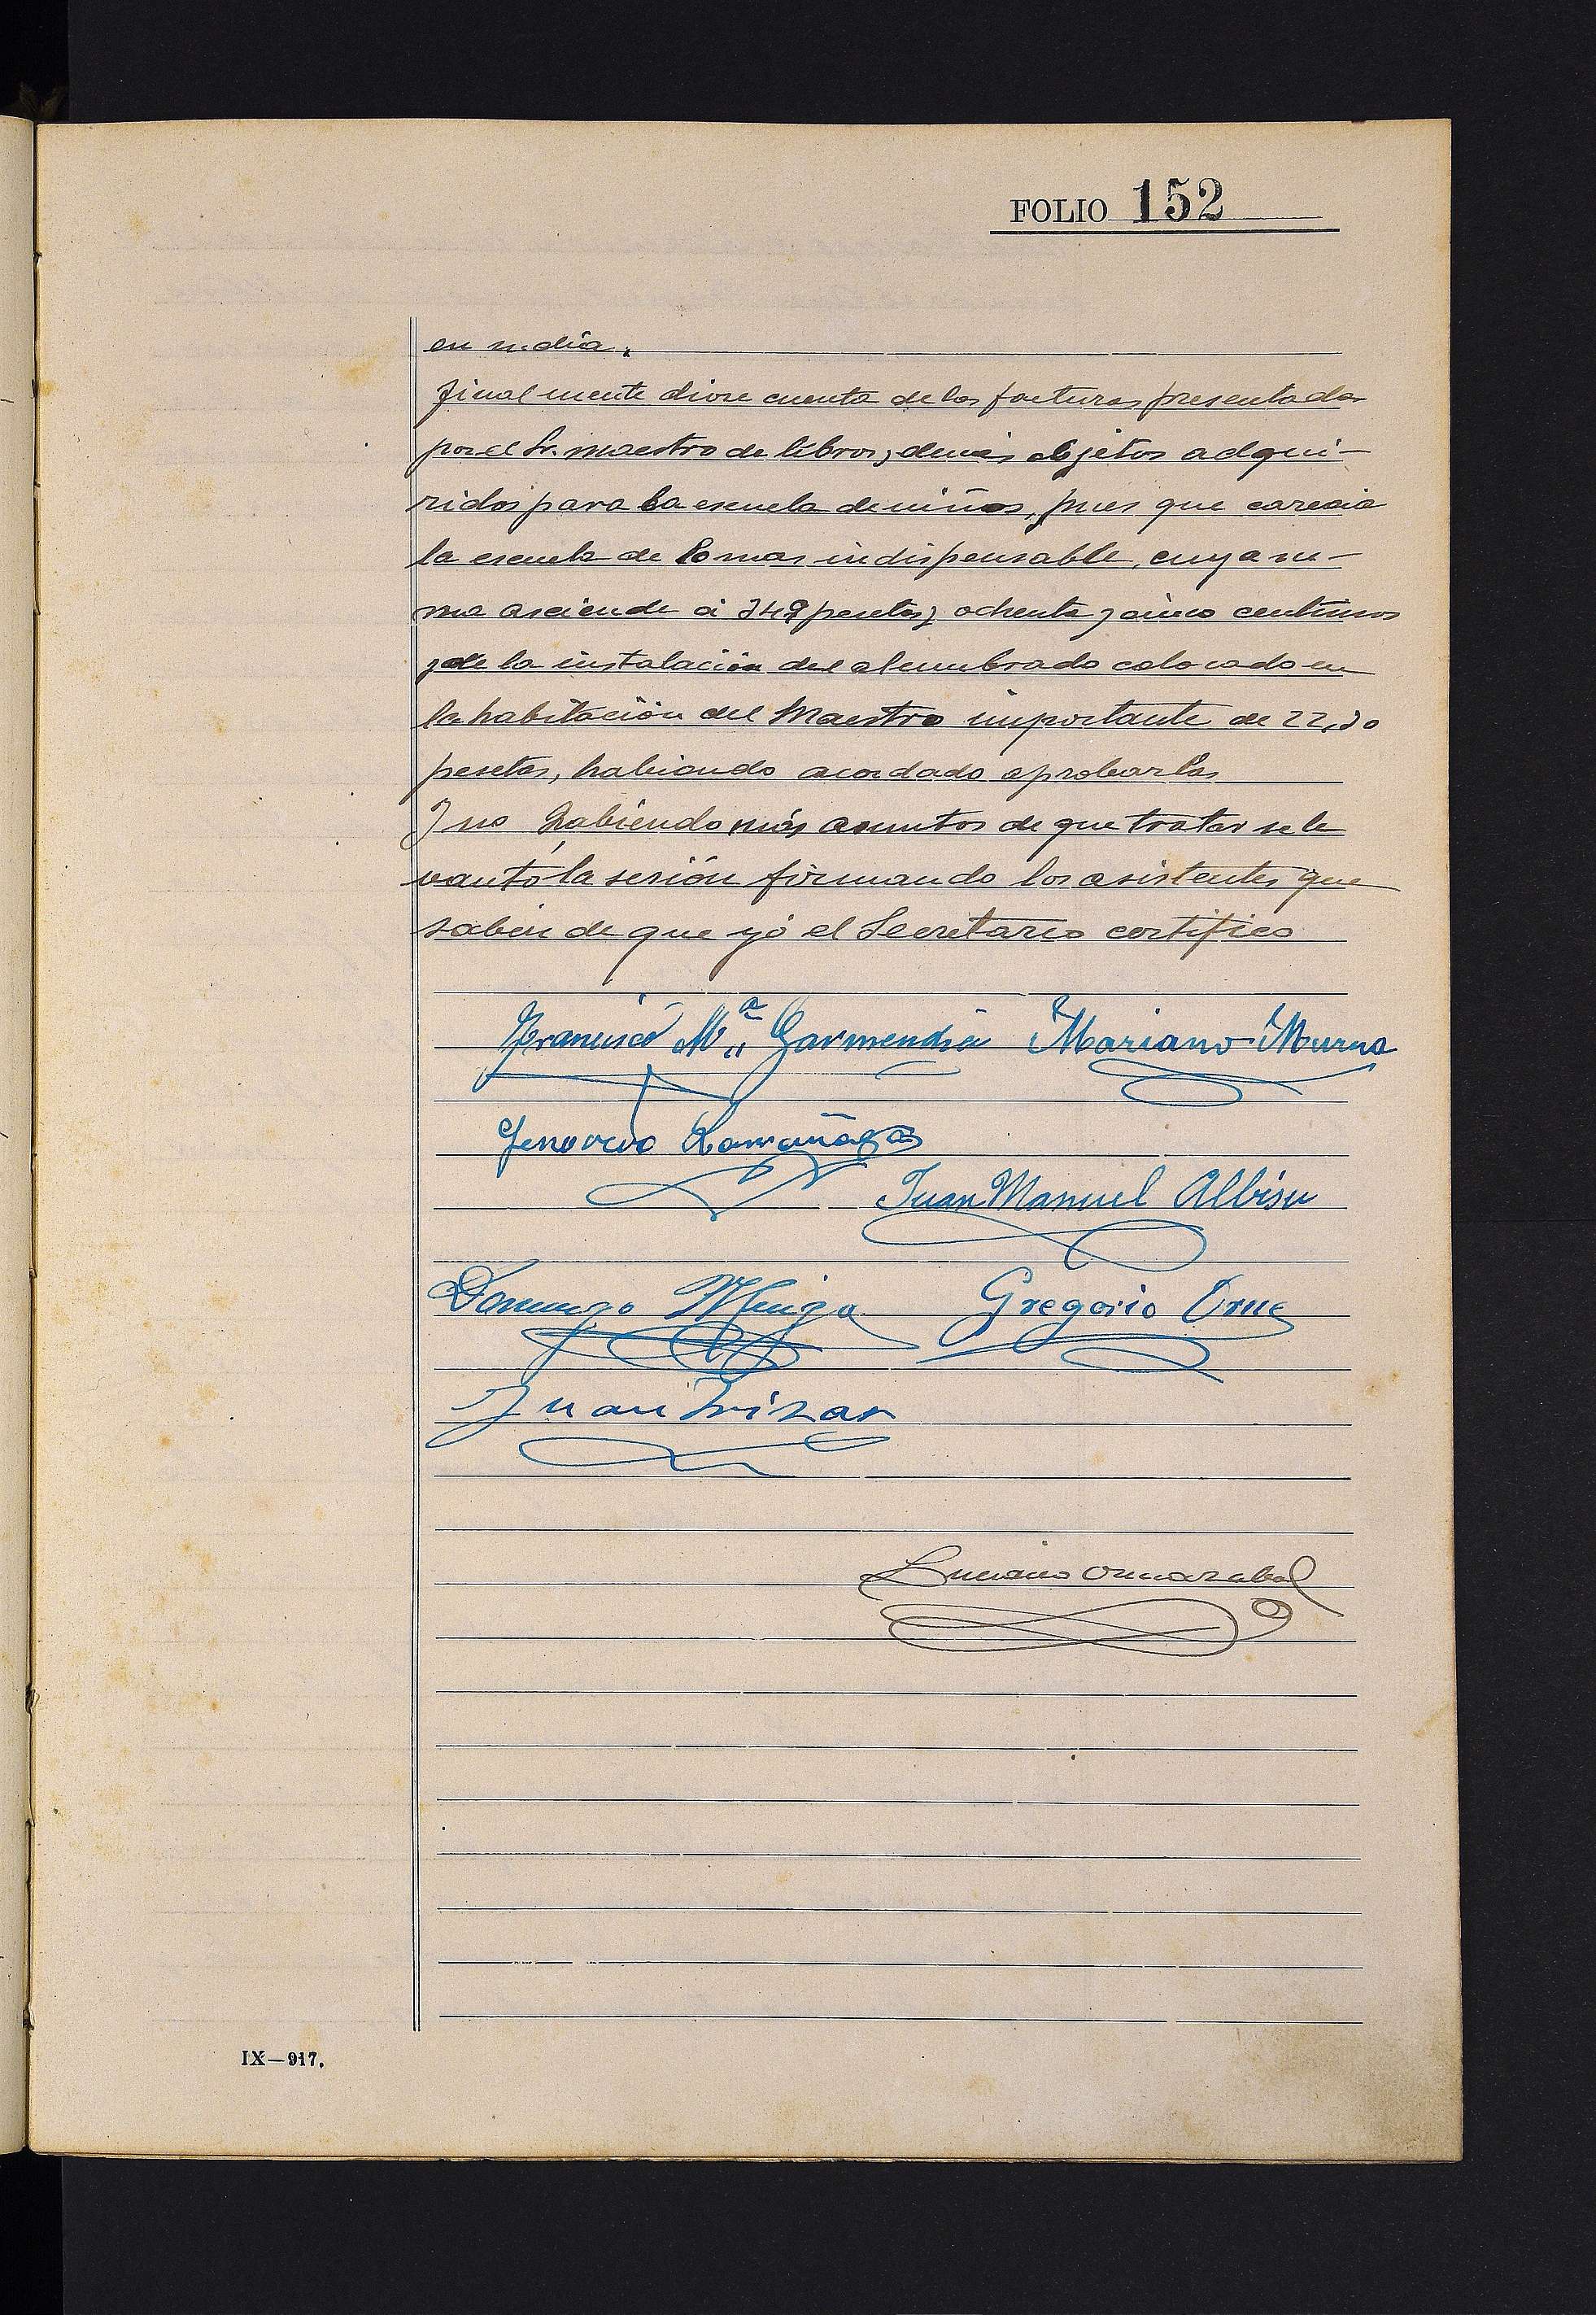 FOLIO 152
en su día.
Finalmente diose cuenta de las facturas presentadas
por el Sr. maestro de libros y demás objetos adqui-
ridos para la escuela de niños, pues que carecia
la escuela de lo mas indispensable, cuya su-
ma asciende á 349 pesetas y ochenta y cinco centimos
y de la instalación del alumbrado colocado en
la habitación del Maestro importante de 22,30
pesetas, habiendo acordado aprobarlas
Y no habiendo más asuntos de que tratar se le
vantó la sesión firmando los asistentes que
saben de que yó el Secretario certifico
Francisco Mª Garmendia Mariano Murua
Genoveva Larrañaga
Juan Manuel Albisu
Domingo Gregorio
Juan Irizar
Luciano Ormazabal
IX—917.